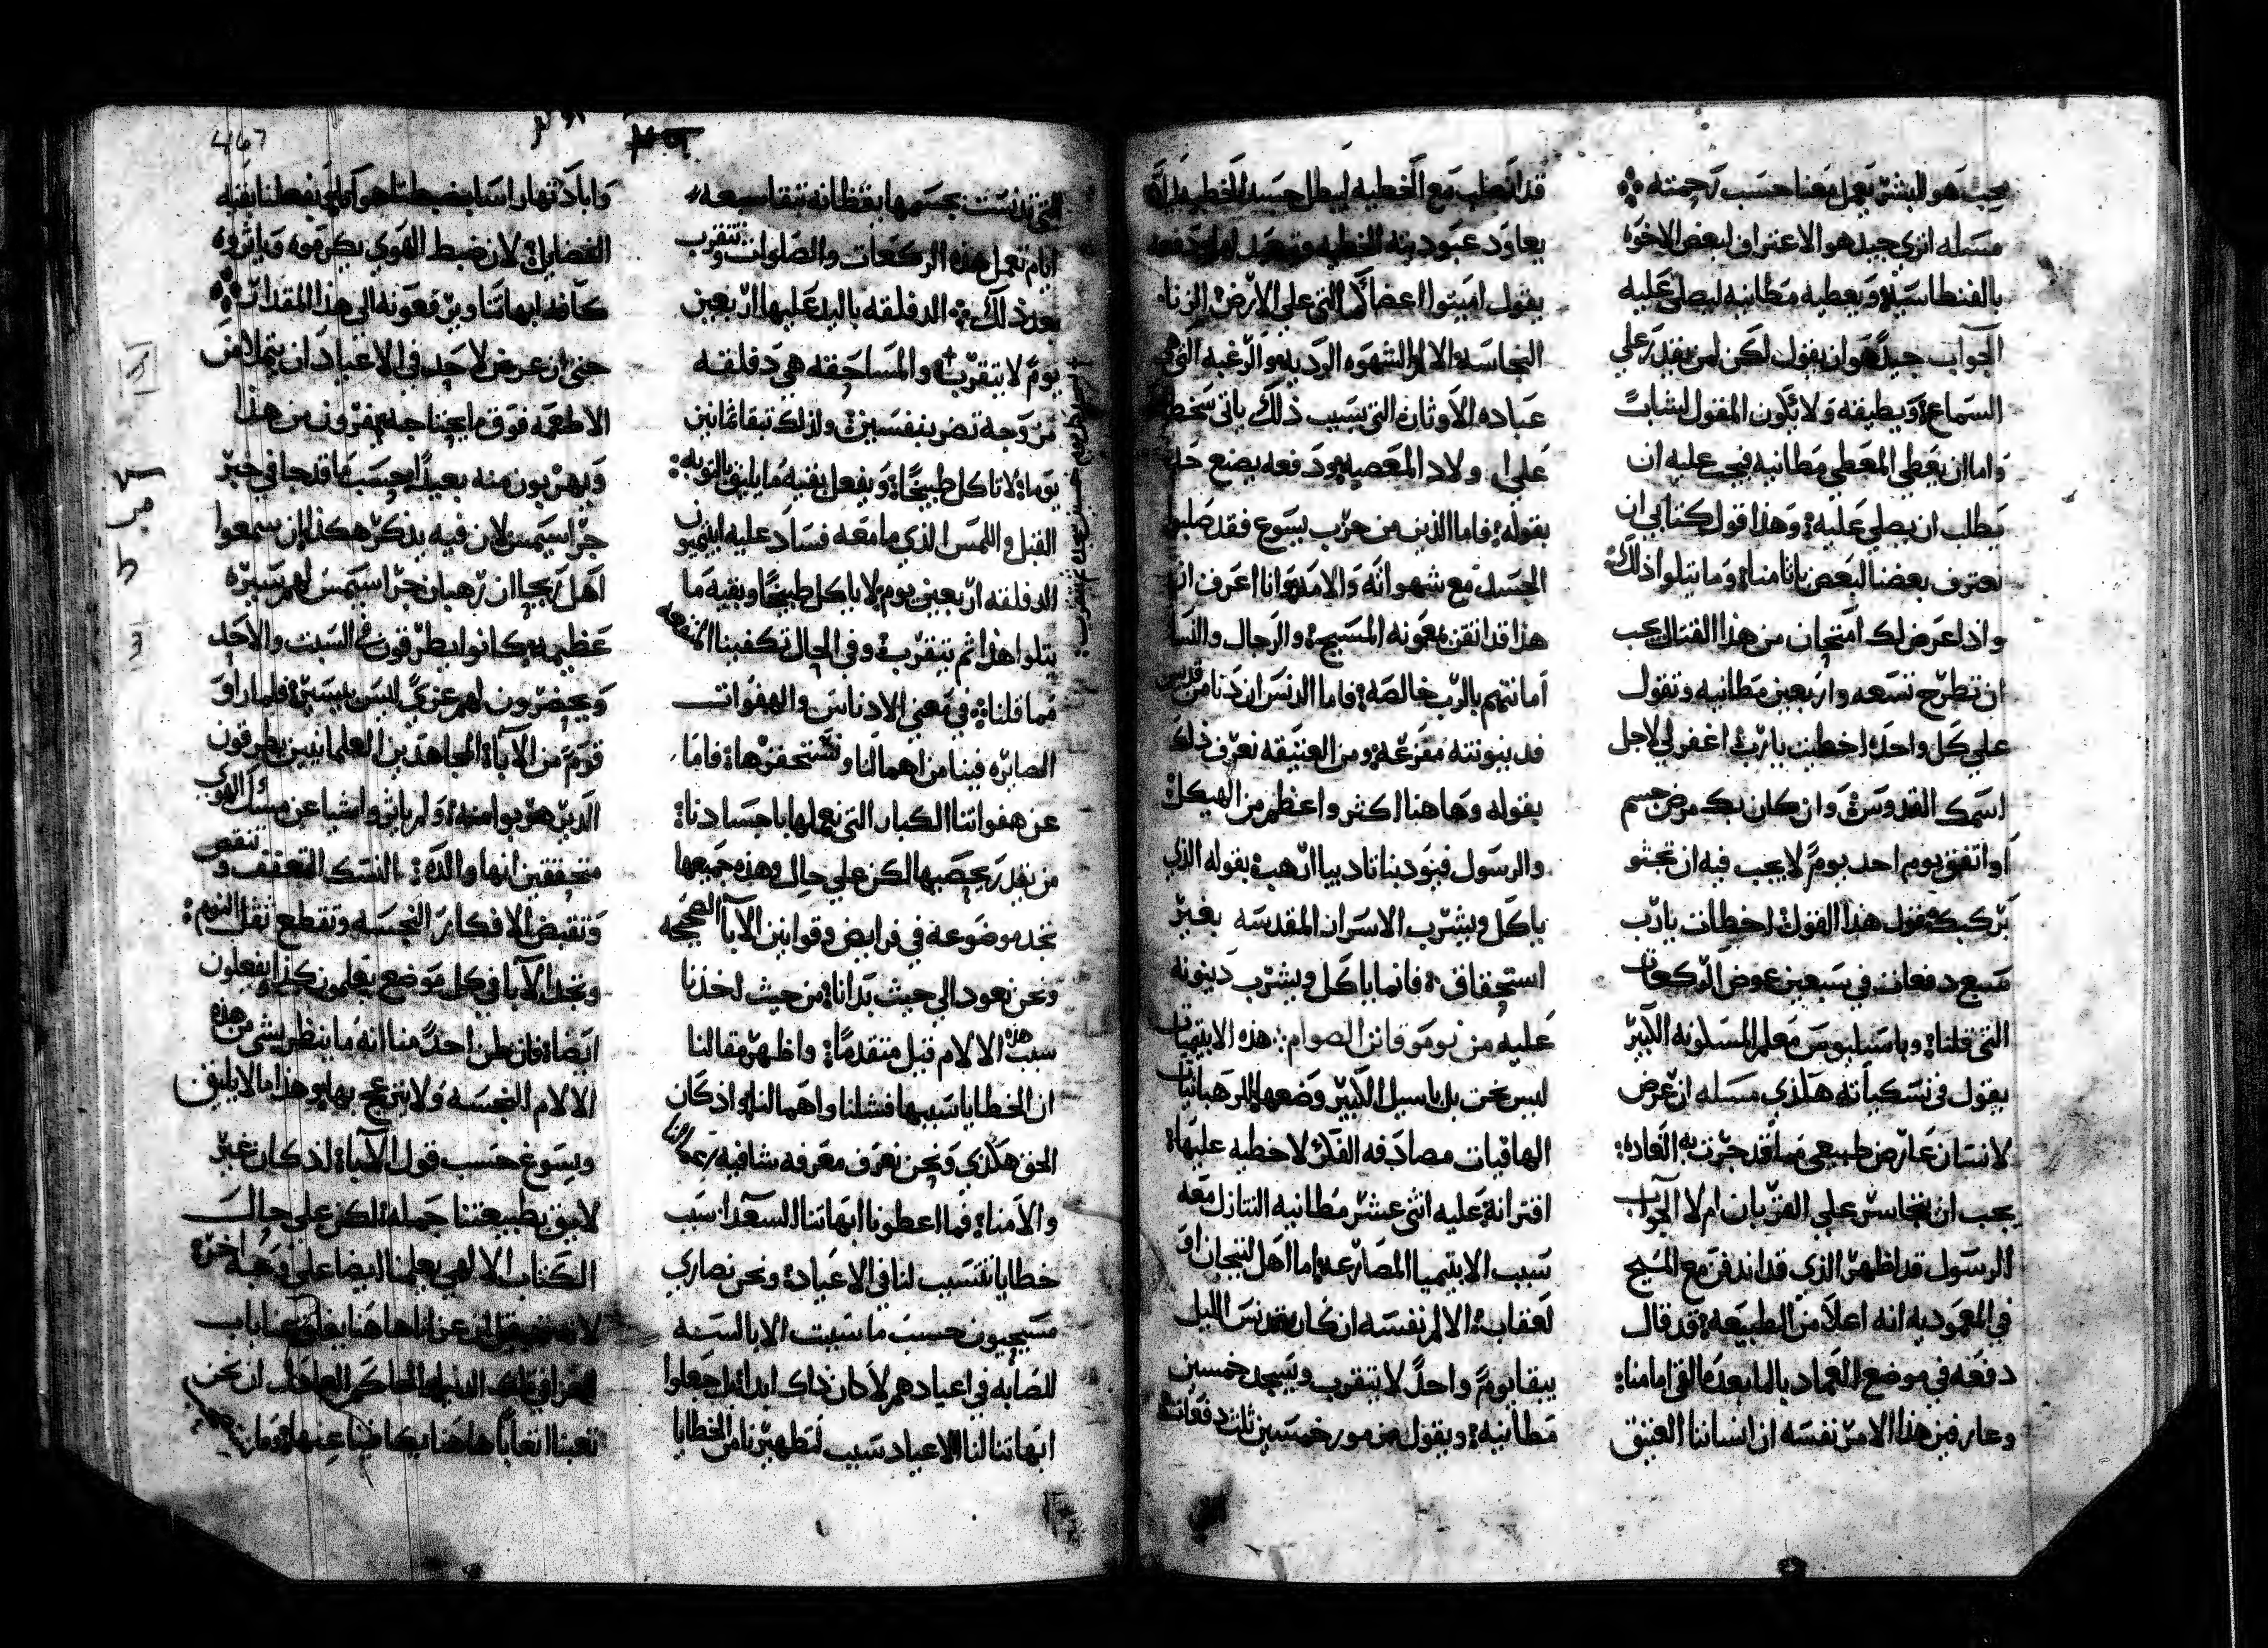 يجب هو للبشر يعمل معنا حسب رحمته
مسله اتري جيد هو الاعتراف لبعض الاخوه
بالفنطاسيه ويعطيه مطانيه ليصلي عليه
الجواب جيداً هو ان يقول لكن لمن يقدر علي
السماع ويطيقه ولا يكون المقول لشاب
واما ان يعطي المعطي مطانيه فيجب عليه ان
يطلب ان يصلي عليه وهذا قول كتابي ان
نعترف بعضنا لبعض باثامنا وما يتلوا ذلك
واذا عرض لك امتحان من هذا القتال يجب
ان تطرح تسعه واربعين مطانيه وتقول
علي كل واحده اخطيت يارب اغفر لي لاجل
اسمك القدوس وان كان بك مرض جسم
او اتفق يوم احد يوم لا يجب فيه ان تجثو
بركبك فقول هذا القول اخطات يارب
سبع دفعات في سبعين عوض الركعات
التي قلنا وباسيليوس معلم المسكونه الكبير
يقول في نسكياته هكذي مسله ان عرض
لانسان عارض طبيعي مما قد جرت به العاده
يجب ان يتجاسر علي القربان ام لا الجواب
الرسول قد اظهر الذي قد اندفن مع المسيح
في المعموديه انه اعلا من الطبيعه قد قال
دفعه في موضع العماد بالما بعد ما القا امامنا
وعارفين هذا الامر نفسه ان انساننا العتيق
قد انصلب مع الخطيه ليبطل جسد الخطيه
يعاود عبوديته الخطيه
يقول اميتوا اعضاكم التي علي الارض الزنا
النجاسه الالام الشهوه الرديه والرغبه التي هي
عباده الاوثان التي بسبب ذلك ياتي سخط
علي اولاد المعصيه ودفعه يضع حد
بقوله فاما الذين من حزب يسوع فقد صلبوا
الجسد مع شهواته والامه وانا اعرف ان
هذا قد اتقن بمعونه المسيح والرجال والنسا
امانتهم بالرب خالصه فاما الدنس ان دنا من قدس
فدينونته مفزعه ومن العتيقه نعرف ذلك
بقوله وهاهنا اكثر واعظم من الهيكل
والرسول فيودبنا تاديبا ارهب بقوله الذي
ياكل ويشرب الاسرار المقدسه بغير
استحقاق فانما ياكل ويشرب دينونه
عليه من نوموقانن الصوام هذه الابتيميات
ليس نحن بل باسيل الكبير وضعها للرهبانيات
الهاقيات مصادفه الفكر لا خطيه عليها
اقترانه عليه اثني عشر مطانيه التنازل معه
سبب الابتيميا المصارعه اما اهل لتيجان او
لعقاب الالم نفسه ان كان يتدنس الليل
يبقا يوم واحد لا يتقرب ويسجد خمسين
مطانيه ويقول مزمور خمسين ثلث دفعات
467
التي تدنست بجسمها بيقظانه تبقا سبعه
ايام تعمل هذه الركعات والصلوات وتتقرب
بعد ذلك الدفلقه باليد عليها اربعين
يوم لا يتقرب والمساحقه هي دفلقه
مزوجه تضر بنفسين ولذلك تبقا ثمانين
يوما لا تاكل طبيخاً ويفعل بقيه ما يليق بالتوبه
القبل واللمس الذي ما معه فساد عليه ابتيميون
الدفلقه اربعين يوم لا ياكل طبيخاً وبقيه ما
يتلوا هذا ثم يتقرب وفي الحال تكفينا المنفعه
مما قلنا في معني الادناس والهفوات
الصايره فينا من اهمالنا ونستحقرها فاما
عن هفواتنا الكبار التي نعملها باجسادنا
من يقدر يحصيها لكن علي حال وهذه جميعها
نجد موضوعه في فرايض وقوانين الابا الصحيحه
ونحن نعود الي حيث بدانا من حيث اخذنا
سبب هذه الالام قبل متقدماً واظهر مقالنا
ان الخطايا سببها فشلنا واهمالنا واذ كان
الحق هكذي ونحن نعرف معرفه شافيه
والامنا فما اعطونا ابهاتنا السعدا سبب
خطايا تتسبب لنا في الاعياد ونحن نصاري
مسيحيون حسب ما سبيت الابا السنه
للصابه في اعيادهم لا دان ذاك ابدا بل جعلوا
ابهاتنا لنا الاعياد سبب لتطهيرنا من الخطايا
وابادتها راسا بضبطنا هوانا وبفعلنا بقيه
الفضايل لان ضبط الهوي يكرموه ويأثروه
كافه ابهاتنا ويرفعونه الي هذا المقدار
حتي ان عرض لاحد في الاعياد ان يتملا من
الاطعمه فوق ما يحتاجه يفرون من هذا
ويهربون منه بعيداً حسب ما قد جا في خبر
جراسيمس لان فيه يذكر هكذا ان سمعوا
اهل اريحا ان رهبان جراسيمس لهم سيره
عظيمه كانوا يطرقون في السبت والاحد
ويحضرون لهم عزي ليس بيسير فلما راو
قوم من الابا المجاهدين العلمانيين يطرقون
الدير هربوا منه ولم ياثروا شيا عن مسك الهوي
متحققين انها والده النسك التعفف وتنقص
وتقبض الافكار النجسه وتقطع ثقل النوم
ونجد الابا في كل موضع يعلمون كذا ويفعلون
ايضا فان ظن احد منا انه ما ينظر بشي من هذه
الالام النجسه ولا ينزعج بها وهذا ما لا يليق
ويسوغ حسب قول الابا اذ كان غير
لايق بطبيعتنا حمله لكن علي حال
الكتاب الالهي يعلمنا ايضا علي وجه اخر
تعبنا اتعاباً هاهنا يكافينا عنها وما